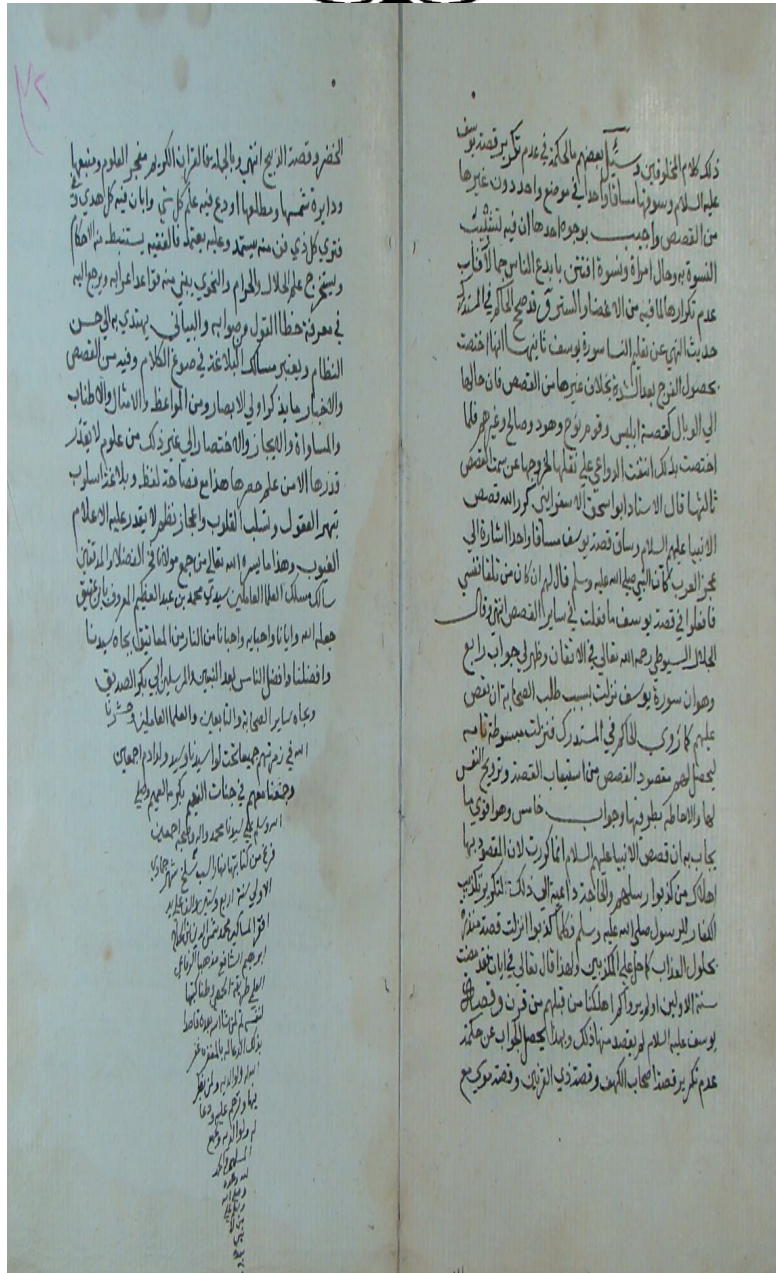 ذلك كلام المخلوقين وسئل بعضهم ما الحكمة في عدم تكرير قصة يوسف
عليه السلام وسوقها مساقا واحدا في موضع واحد دون غيرها
من القصص واجيب بوجوه احدها ان فيه تشبيب
النسوة به وحال امراة ونسوة افتتن بابدع الناس جمالا فناسب
عدم تكرارها لما فيه من الاغضا والستر وقد صحح الحاكم في المستدرك
حديث النهي عن تعليم النسا سورة يوسف ثانيها انها اختصت
بحصول الفرج بعد الشدة بخلاف غيرها من القصص فان مالها
الي الوبال كقصة ابليس وقوم نوح وهود وصالح وغيرهم فلما
اختصت بذلك اتفقت الدواعي على نقلها لخروجها عن سمت القصص
ثالثها قال الاستاذ ابو اسحق الاسفرايني كرر الله قصص
الانبيا عليهم السلام وساق قصة يوسف مساقا واحدا اشارة الي
عجز العرب كأن النبي صلى الله عليه وسلم قال لهم ان كان من تلقا نفسي
فافعلوا في قصة يوسف ما فعلت في ساير القصص انتهى وقال
الجلال السيوطي رحمه الله تعالي في الاتقان وظهر لي جواب رابع
وهو ان سورة يوسف نزلت بسبب طلب الصحابة ان يقص
عليهم كما روي الحاكم في المستدرك فنزلت مبسوطة تامة
ليحصل لهم مقصود القصص من استيعاب القصة وترويح النفس
بها والاحاطة بطرفيها وجواب خامس وهو اقوي ما
يجاب به ان قصص الانبيا عليهم السلام انما كررت لان المقصود بها
اهلاك من كذبوا رسلهم والحاجة داعية الى ذلك لتكرير تكذيب
الكفار للرسول صلى الله عليه وسلم فكلما كذبوا انزلت قصة منذرة
بحلول العذاب كما حل على المكذبين ولهذا قال تعالي في ايات فقد مضت
سنة الاولين اولم يروا كم اهلكنا من قبلهم من قرن وقصة
يوسف عليه السلام لم يقصد منها ذلك وبهذا يحصل الجواب عن حكمة
عدم تكرير قصة اصحاب الكهف وقصة ذي القرنين وقصة موسي مع
الخضر وقصة الذبيح انتهى وبالجملة فالقران الكريم مفجر العلوم ومنبعها
ودايرة شمسها ومطلعها اودع فيه علم كل شي وابان فيه كل هدي وغي
فتري كل ذي فن منه يستمد وعليه يعتمد فالفقيه يستنبط منه الاحكام
ويستخرج علم الحلال والحرام والنحوي يبني منه قواعد اعرابه ويرجع اليه
في معرفة خطا القول من صوابه والبياني يهتدي به الي حسن
النظام ويعتبر مسالك البلاغة في صوغ الكلام وفيه من القصص
والاخبار ما يذكر اولي الابصار ومن المواعظ والامثال والاطناب
والمساواة والايجاز والاختصار الي غير ذلك من علوم لا يقدر
قدرها الا من علم حصرها هذا مع فصاحة لفظ وبلاغة اسلوب
تبهر العقول وتسلب القلوب واعجاز نظم لا يقدر عليه الا علام
الغيوب وهذا ما يسره الله تعالي من جمع مولانا فخر الفضلا والمدققين
سالك مسلك العلما العاملين سيدي محمد بن عبد العظيم المعروف بابن عتيق
جعله الله وايانا واحبابه واحبابنا من النار من المعاتيق بجاه سيدنا
وافضلنا وافضل الناس بعد النبيين والمرسلين ابي بكر الصديق
وبجاه ساير الصحابة والتابعين والعلما العاملين وحشرنا
الله في زمرتهم جميعا تحت لوا سيدنا وسيد ولد ادم اجمعين
وجمعنا معهم في جنات النعيم بكرمه العميم وصلي
الله وسلم على سيدنا محمد واله وصحبه اجمعين
فرغ من كتابتها نهار السبت سلخ شهر جمادي
الاولي سنة اربع وستين والف على يد
افقر المساكين محمد شمس الدين
ابراهيم الشافعي مذهبا الرفاعي
طريقة الحمصي وطنا كتبها
لنفسه ثم لمن شا الله بعده قاصدا
بذلك الدعا له بالمغفرة غفر
الله له ولوالديه ولمن نظر
فيها وترحم عليه ودعا
له ولوالديه ولجميع
المسلمين والحمد
لله وحده
وصلى الله